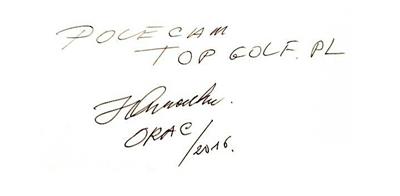 POLECAM
TOP GOLF.PL
ORAC
/2016.